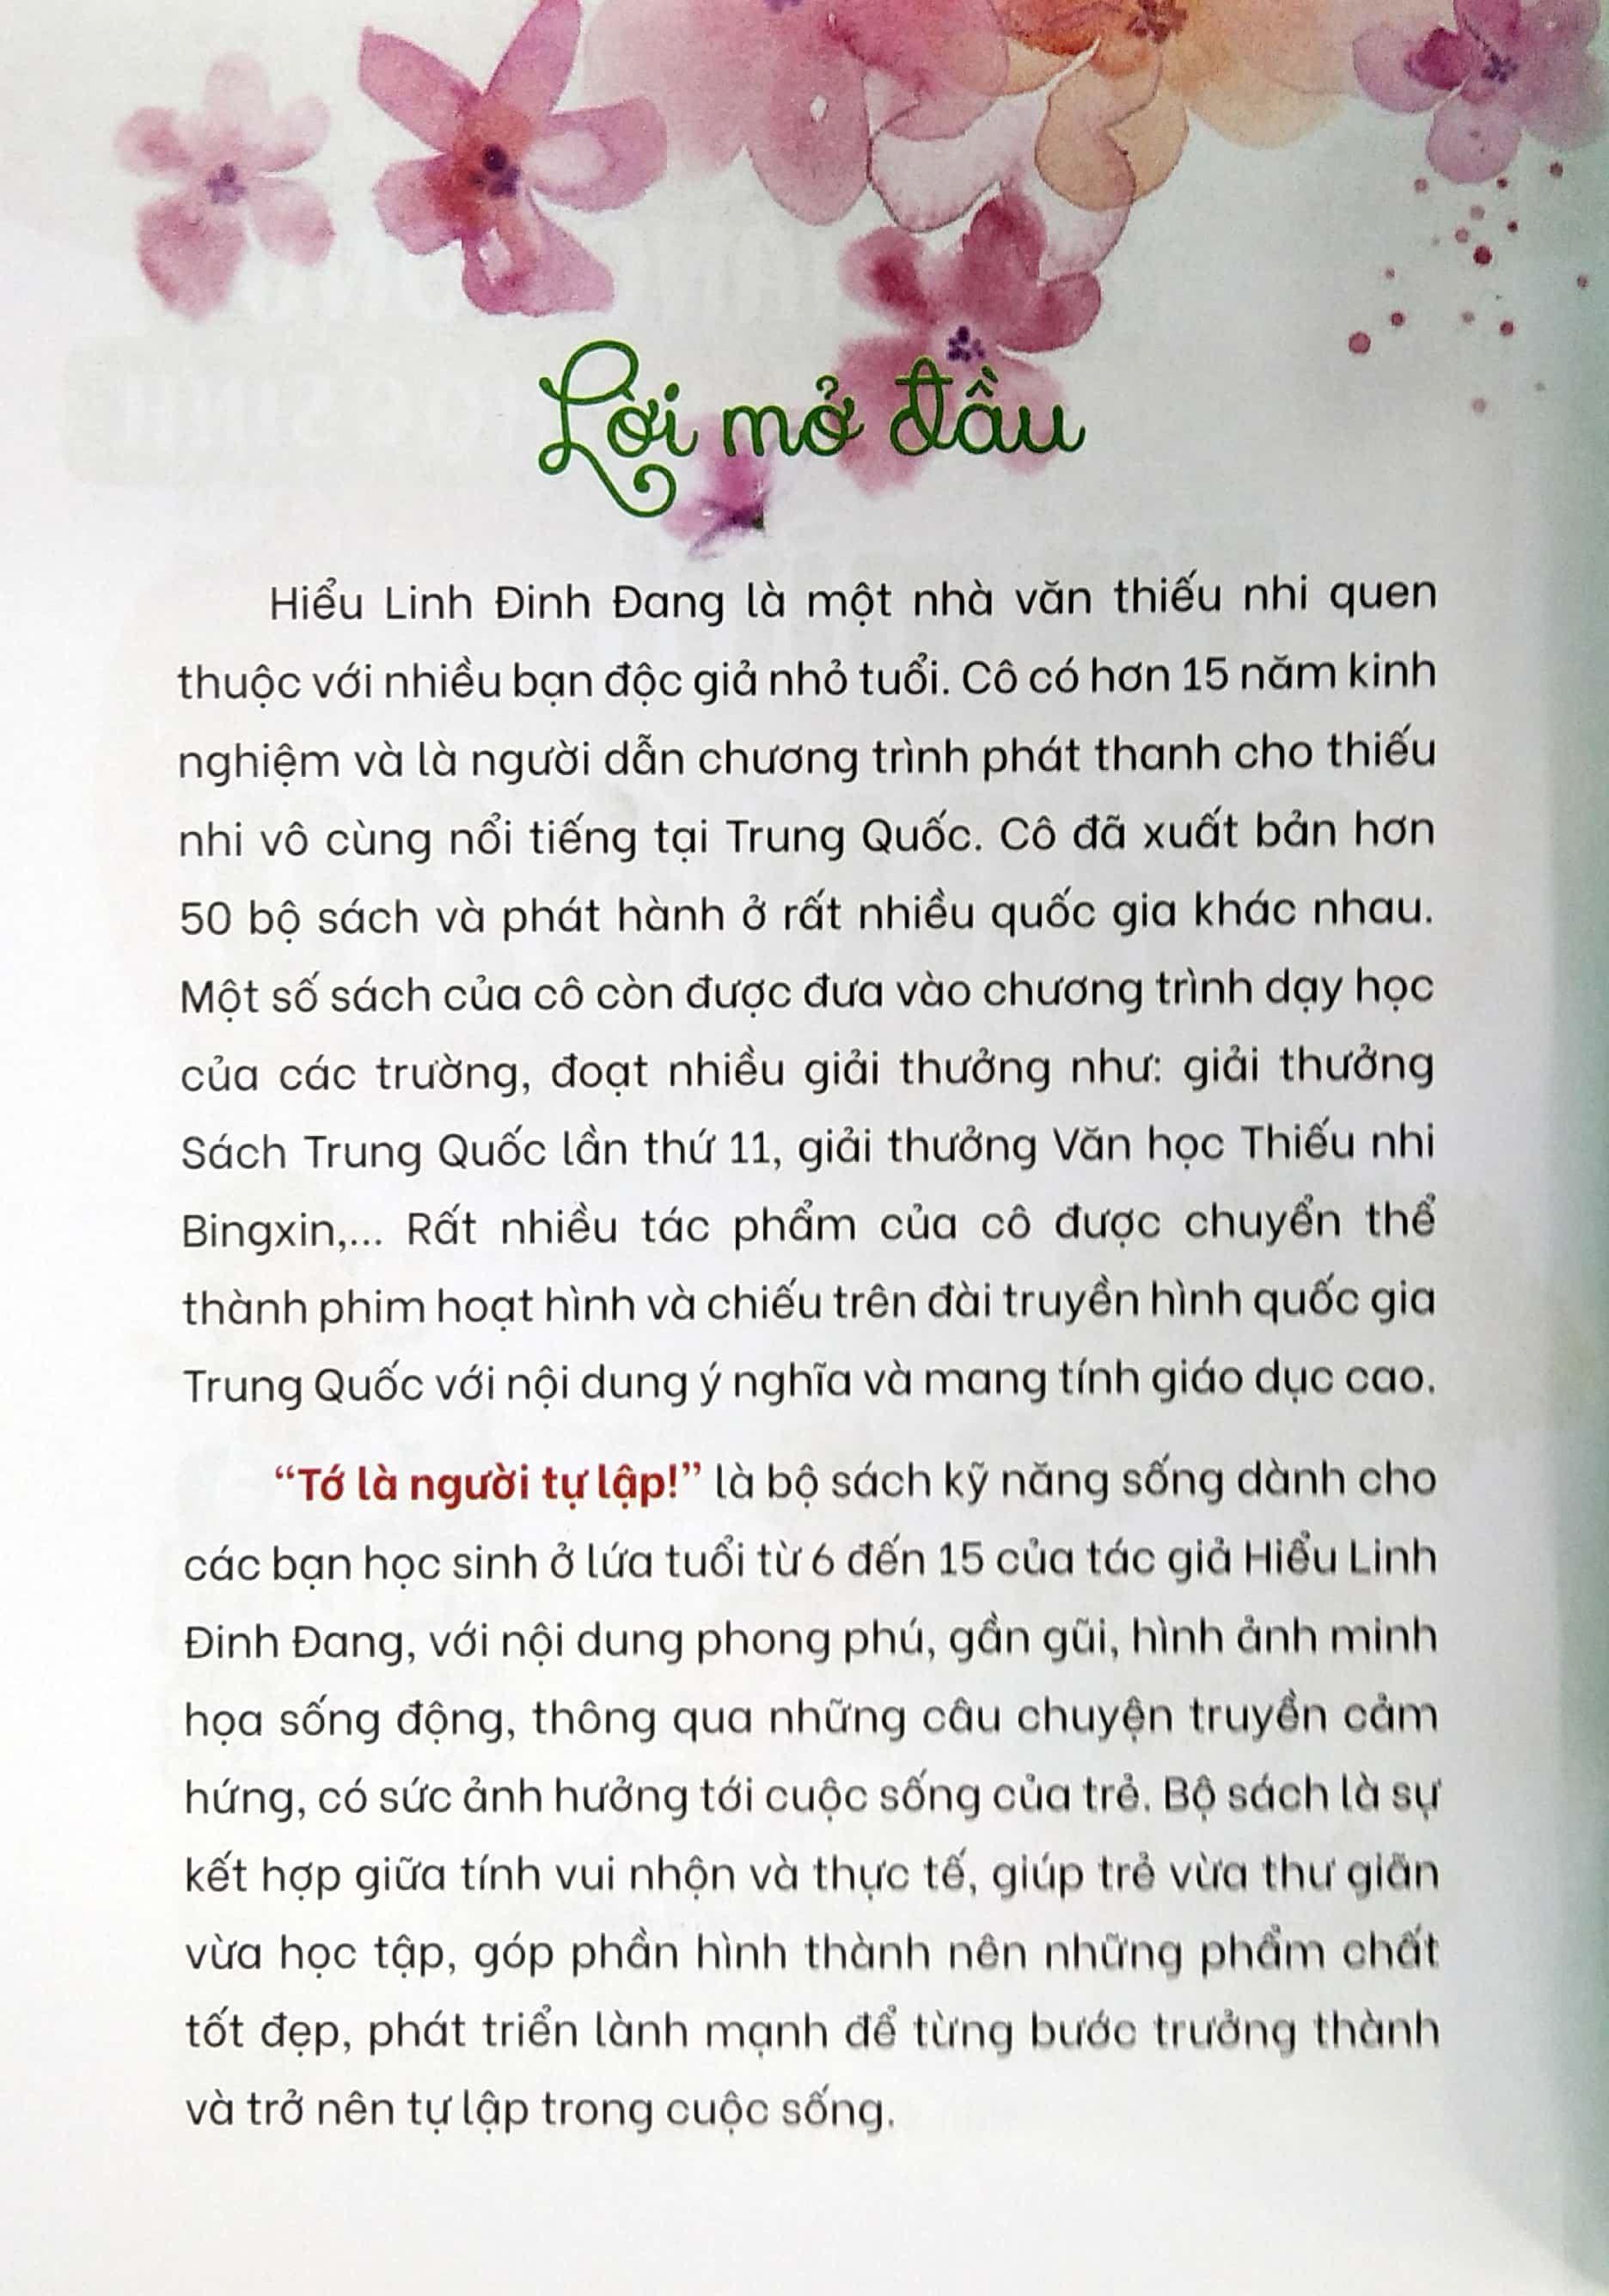 Lời mở đầu
Hiểu Linh Đinh Đang là một nhà văn thiếu nhi quen
thuộc với nhiều bạn độc giả nhỏ tuổi. Cô có hơn 15 năm kinh
nghiệm và là người dẫn chương trình phát thanh cho thiếu
nhi vô cùng nổi tiếng tại Trung Quốc. Cô đã xuất bản hơn
50 bộ sách và phát hành ở rất nhiều quốc gia khác nhau.
Một số sách của cô còn được đưa vào chương trình dạy học
của các trường, đoạt nhiều giải thưởng như: giải thưởng
Sách Trung Quốc lần thứ 11, giải thưởng Văn học Thiếu nhi
Bingxin,... Rất nhiều tác phẩm của cô được chuyển thể
thành phim hoạt hình và chiếu trên đài truyền hình quốc gia
Trung Quốc với nội dung ý nghĩa và mang tính giáo dục cao.
“Tớ là người tự lập!” là bộ sách kỹ năng sống dành cho
các bạn học sinh ở lứa tuổi từ 6 đến 15 của tác giả Hiểu Linh
Đinh Đang, với nội dung phong phú, gần gũi, hình ảnh minh
họa sống động, thông qua những câu chuyện truyền cảm
hứng, có sức ảnh hưởng tới cuộc sống của trẻ. Bộ sách là sự
kết hợp giữa tính vui nhộn và thực tế, giúp trẻ vừa thư giãn
vừa học tập, góp phần hình thành nên những phẩm chất
tốt đẹp, phát triển lành mạnh để từng bước trưởng thành
và trở nên tự lập trong cuộc sống.